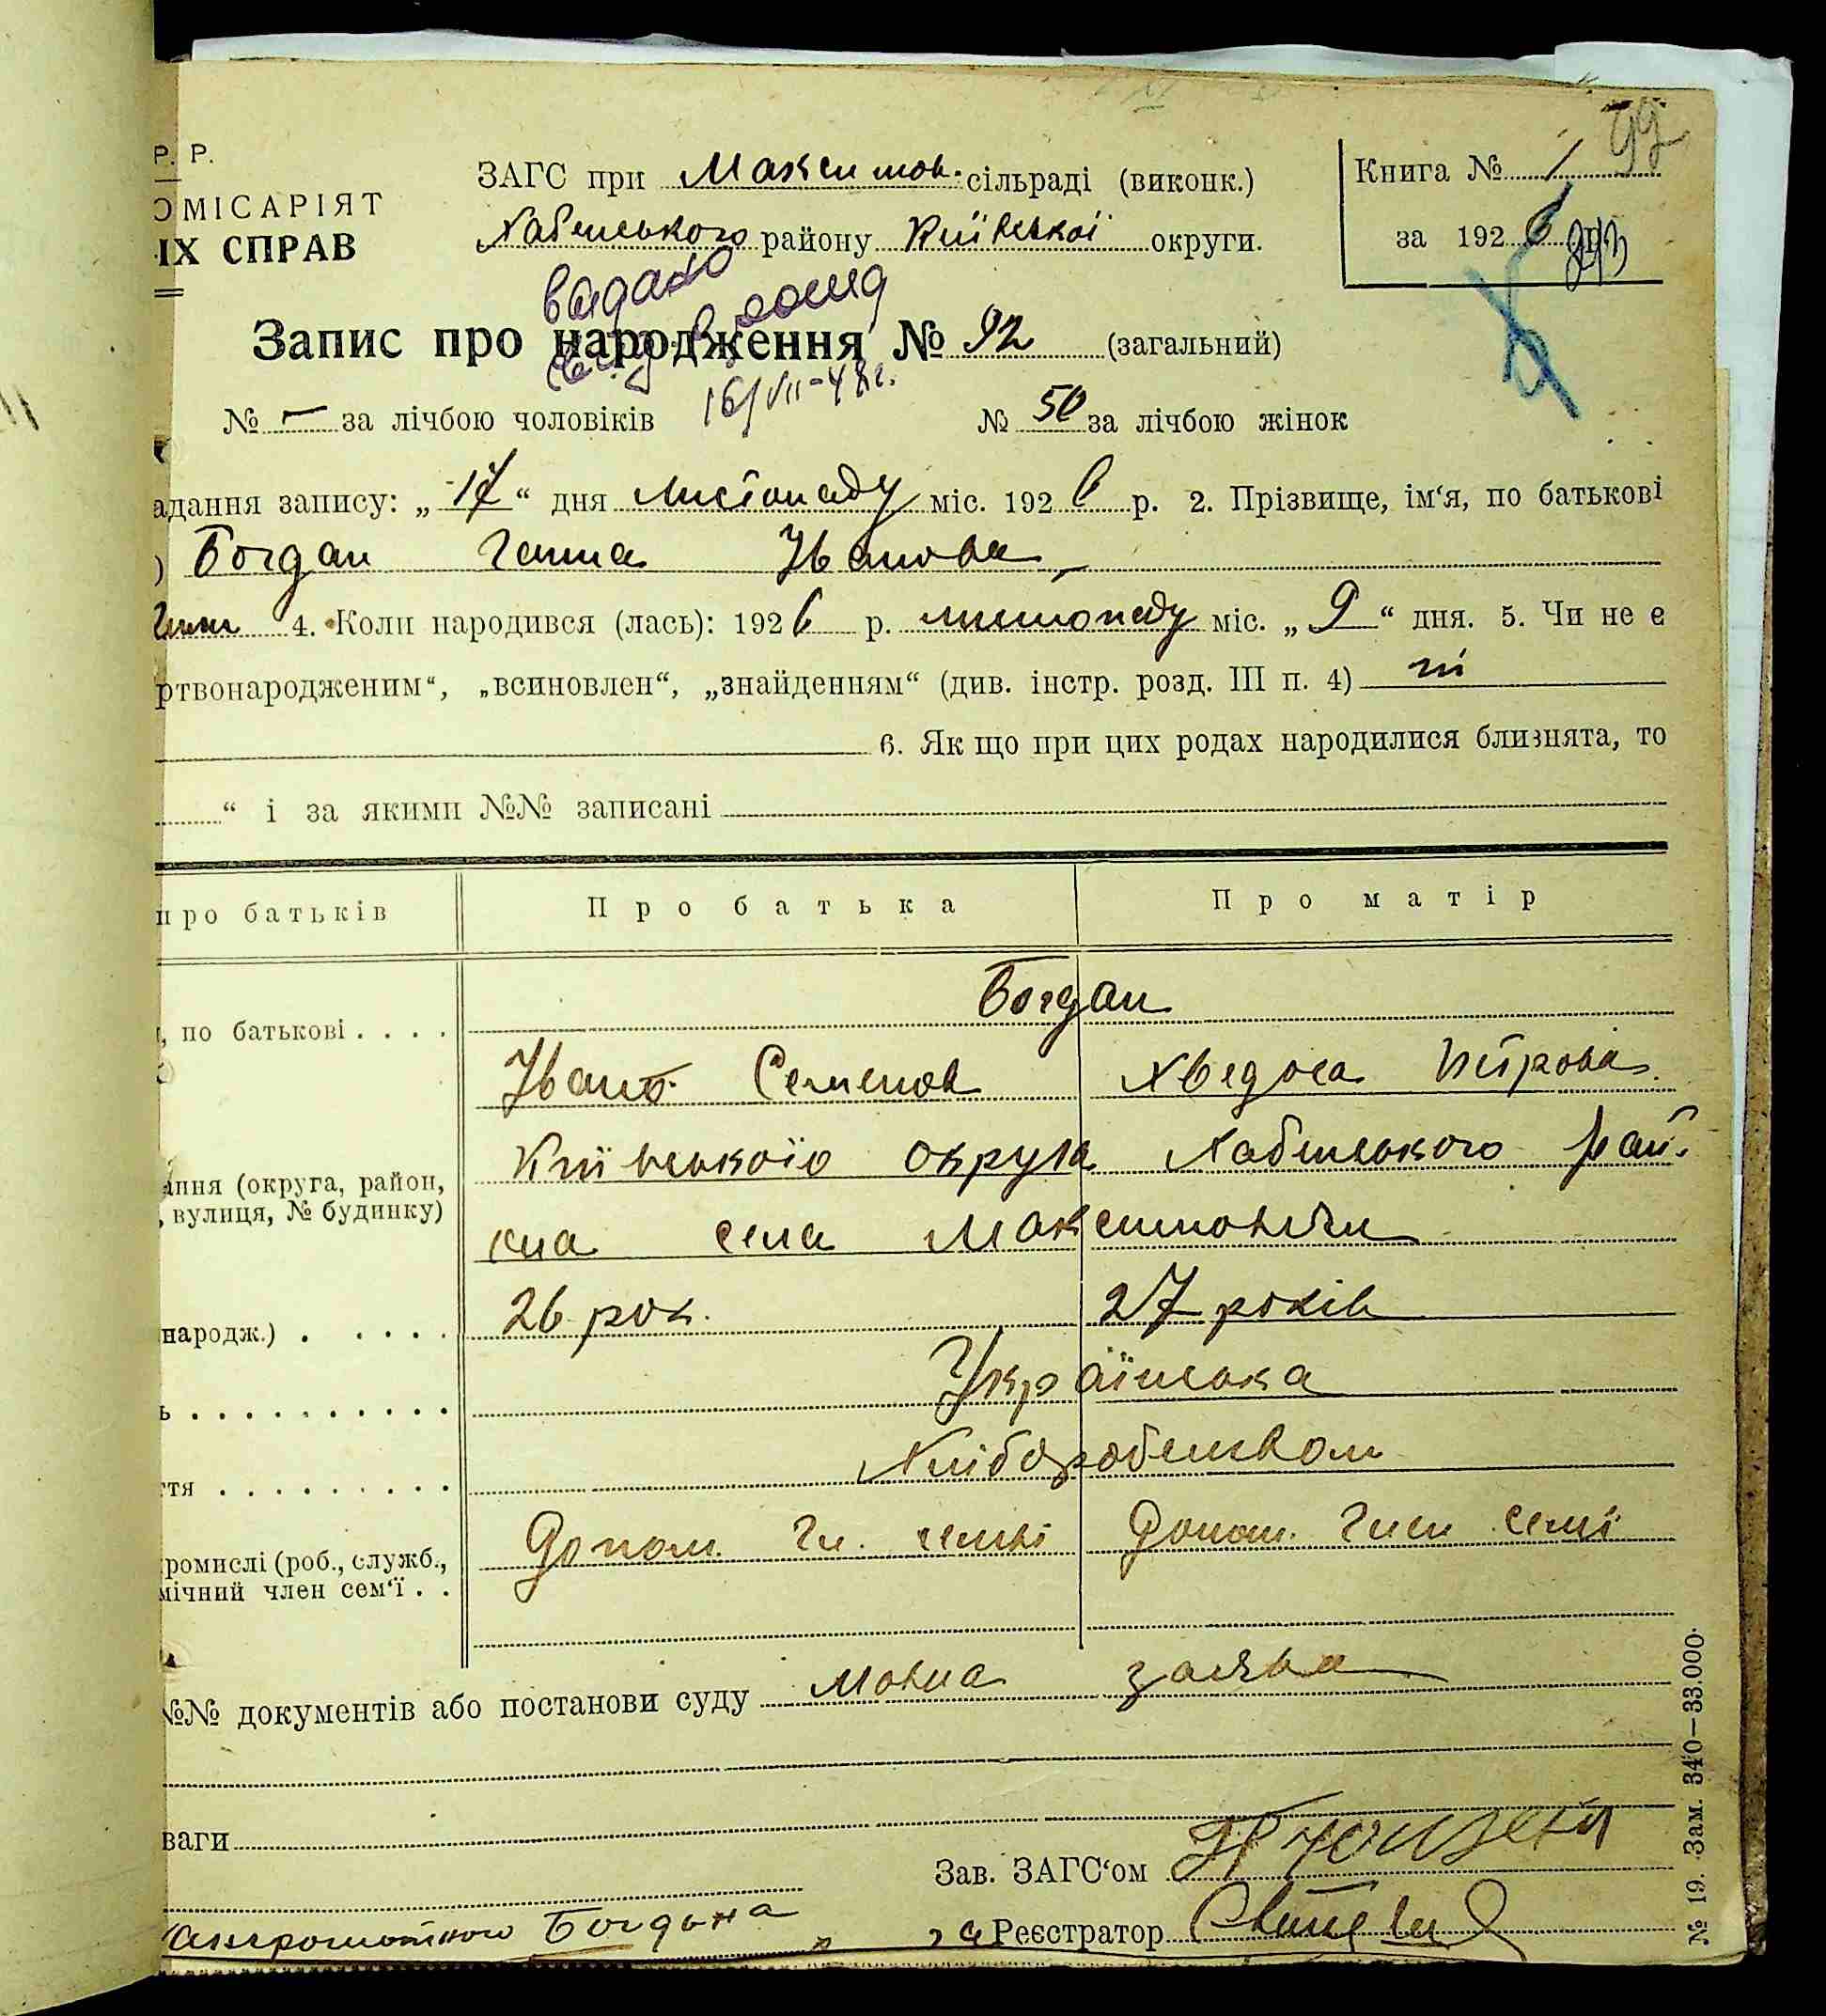 Р. Р.
ОМІСАРІЯТ
ІХ СПРАВ
ЗАГС при Максимов. сільраді (виконк.)
Хабенського району Київської округи.
Книга № 1
за 1926 р.
99
видано
16/VII-48г.
Запис про народження № 92 (загальний)
№ – за лічбою чоловіків № 50 за лічбою жінок
адання запису: „17“ дня листопаду міс. 1926 р. 2. Прізвище, ім‘я, по батькові
) Богдан Ганна Іванова
4. Коли народився (лась): 1926 р. листопаду міс. „9“ дня. 5. Чи не є
ртвонародженим“, „всиновлен“, „знайденням“ (див. інстр. розд. III п. 4) ні
6. Як що при цих родах народилися близнята, то
“ і за якими №№ записані
про батьків Про батька Про матір
Богдан
, по батькові . . . .
Іван Семенов Хведоса Петрова
ання (округа, район, Київської округа Хабенського рай-
, вулиця, № будинку) она села Максимовичи
народж.) . . . . . 26 рок. 27 років
ь . . . . . . . . . . . Українська
ття . . . . . . . . . Хлібороб
ромислі (роб., служб., Допом. чл. семьі Допом. член семї
мічний член сем‘ї . .
№№ документів або постанови суду Мовна заява
ваги
Зав. ЗАГС‘ом
Богдана за Реєстратор
№ 19. Зам. 340—33.000.